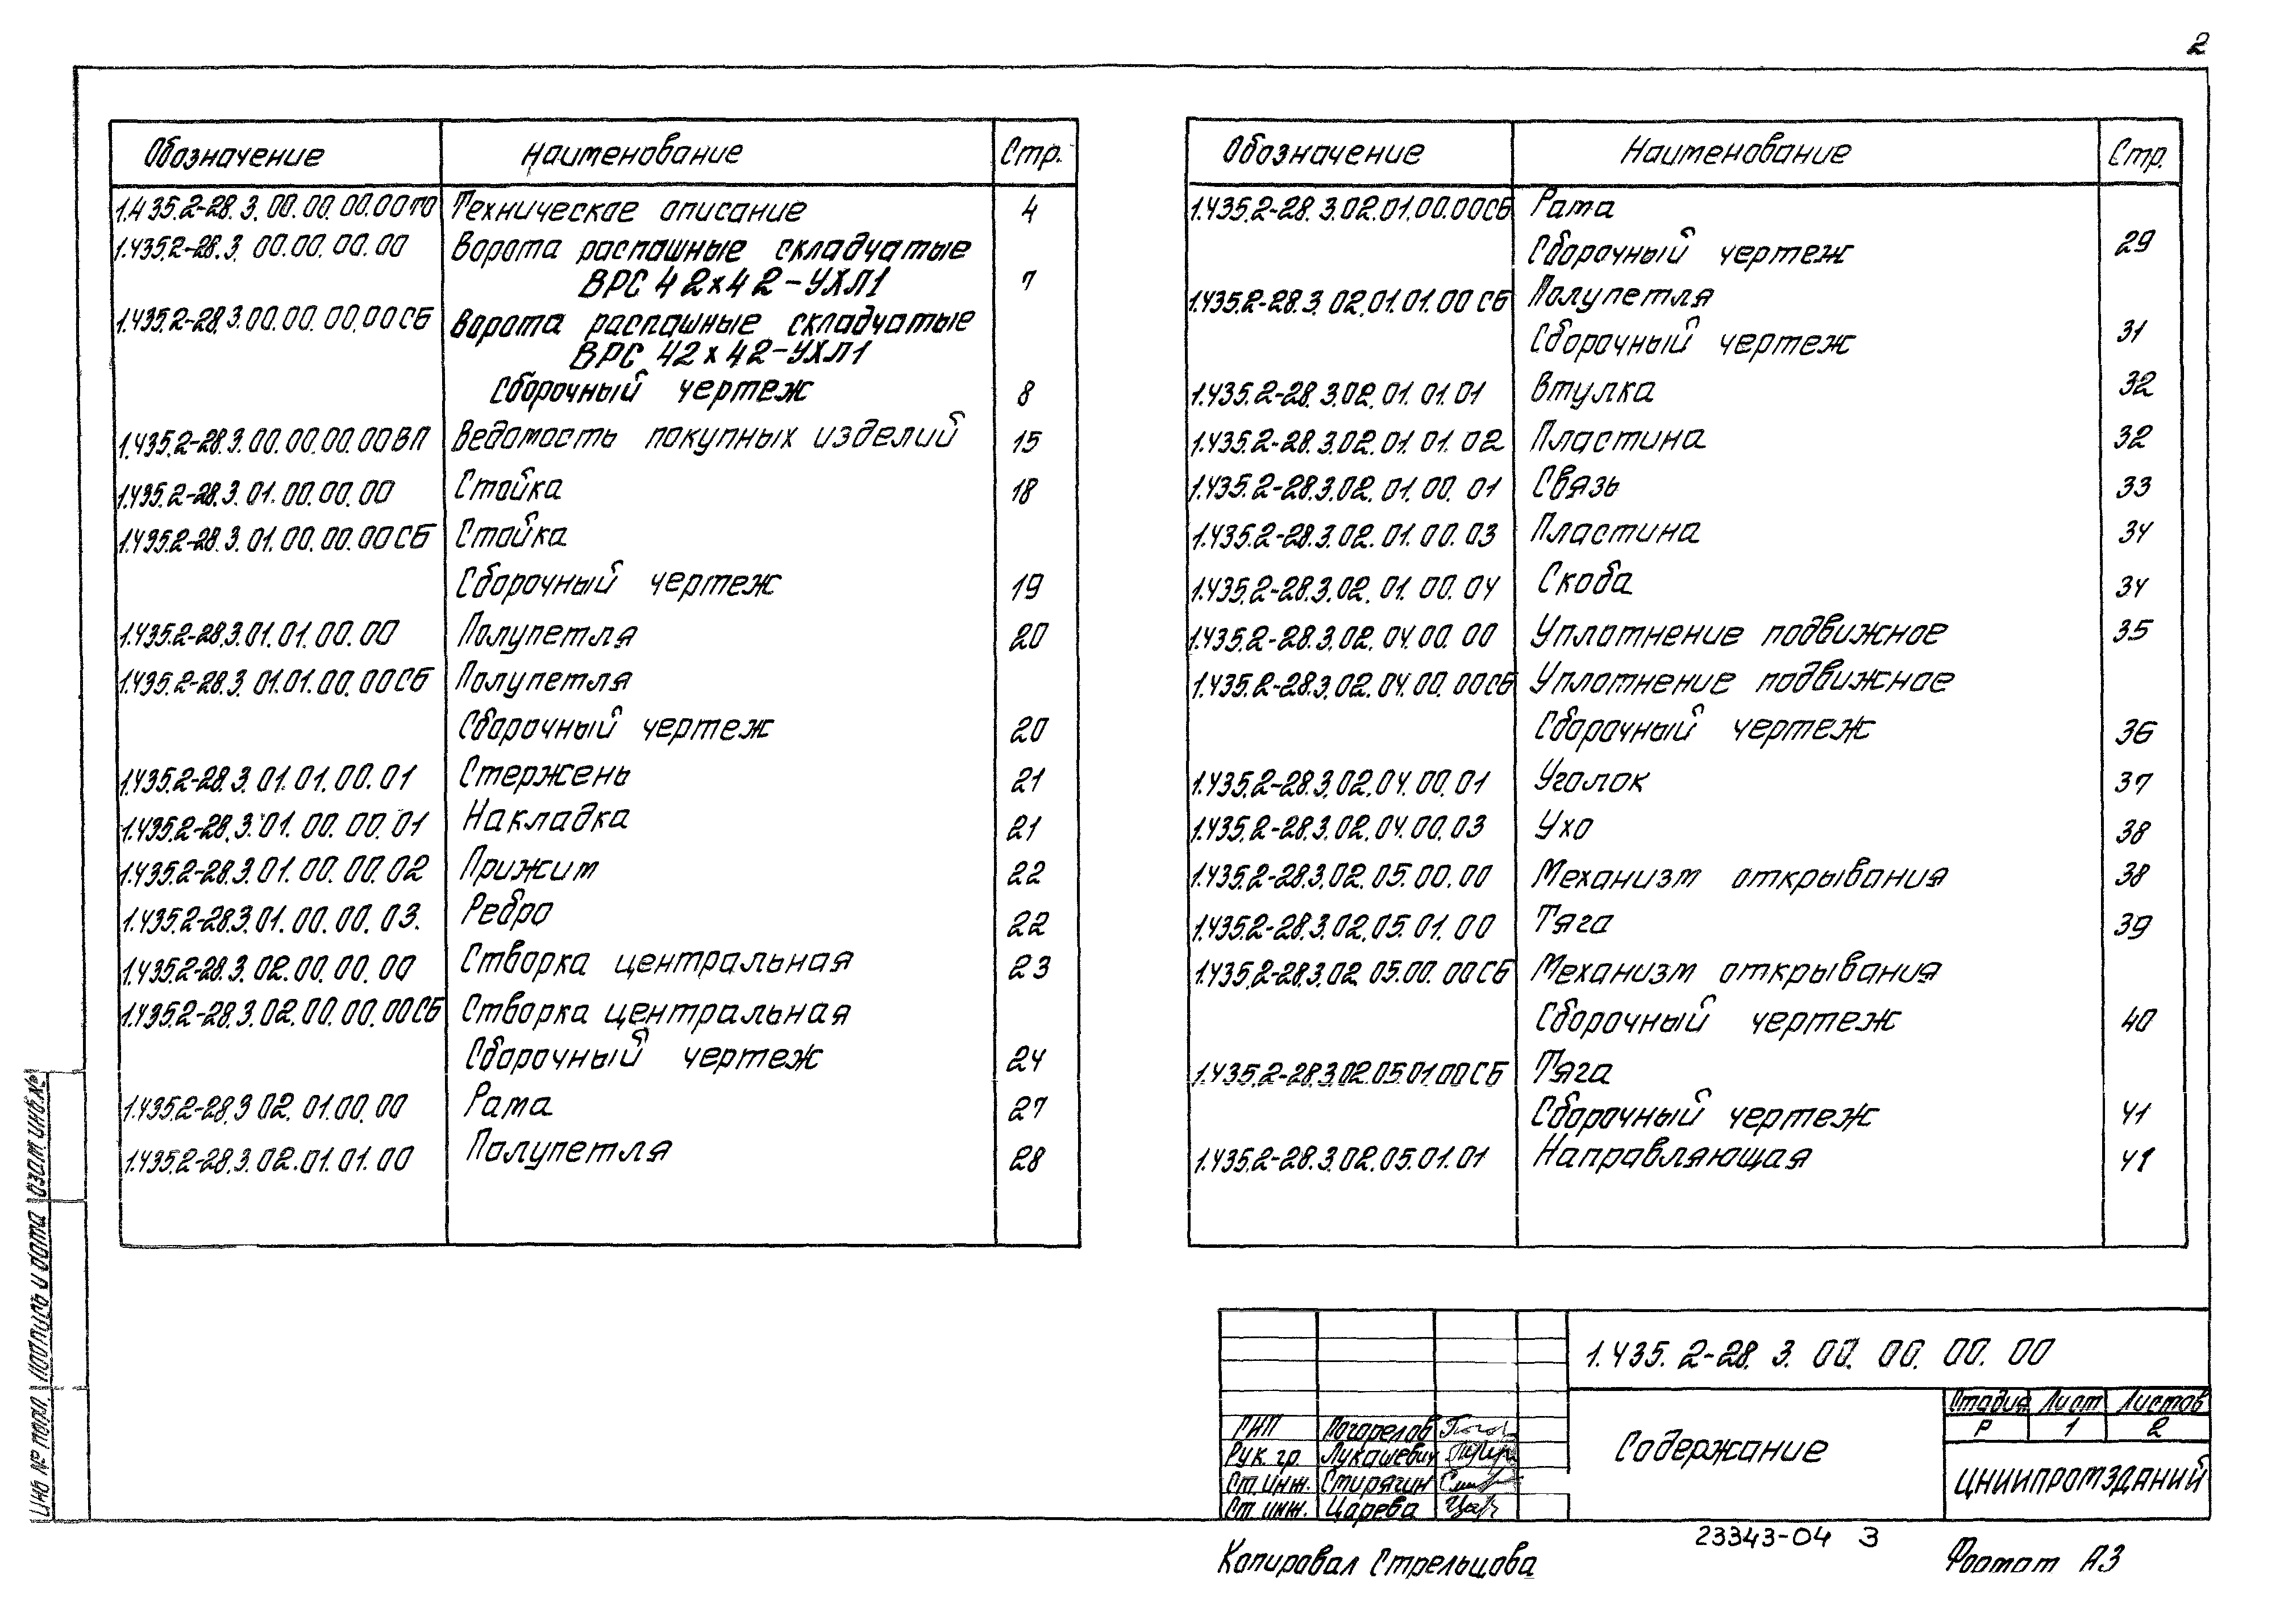 2
Обозначение Наименование Стр.
1.435.2-28.3.00.00.00.00ТО Техническое описание 4
1.435.2-28.3.00.00.00.00 Ворота распашные складчатые
ВРС 42х42-УХЛ1 7
1.435.2-28.3.00.00.00.00СБ Ворота распашные складчатые
ВРС 42х42-УХЛ1
Сборочный чертеж 8
1.435.2-28.3.00.00.00.00ВП Ведомость покупных изделий 15
1.435.2-28.3.01.00.00.00 Стойка 18
1.435.2-28.3.01.00.00.00СБ Стойка
Сборочный чертеж 19
1.435.2-28.3.01.01.00.00 Полупетля 20
1.435.2-28.3.01.01.00.00СБ Полупетля
Сборочный чертеж 20
1.435.2-28.3.01.01.00.01 Стержень 21
1.435.2-28.3.01.00.00.01 Накладка 21
1.435.2-28.3.01.00.00.02 Прижим 22
1.435.2-28.3.01.00.00.03. Ребро 22
1.435.2-28.3.02.00.00.00 Створка центральная 23
1.435.2-28.3.02.00.00.00СБ Створка центральная
Сборочный чертеж 24
1.435.2-28.3 02.01.00.00 Рама 27
1.435.2-28.3.02.01.01.00 Полупетля 28
Обозначение Наименование Стр.
1.435.2-28.3.02.01.00.00СБ Рама
Сборочный чертеж 29
1.435.2-28.3.02.01.01.00СБ Полупетля
Сборочный чертеж 31
1.435.2-28.3.02.01.01.01 Втулка 32
1.435.2-28.3.02.01.01.02 Пластина 32
1.435.2-28.3.02.01.00.01 Связь 33
1.435.2-28.3.02.01.00.03 Пластина 34
1.435.2-28.3.02.01.00.04 Скоба 34
1.435.2-28.3.02.04.00.00 Уплотнение подвижное 35
1.435.2-28.3.02.04.00.00СБ Уплотнение подвижное
Сборочный чертеж 36
1.435.2-28.3.02.04.00.01 Уголок 37
1.435.2-28.3.02.04.00.03 Ухо 38
1.435.2-28.3.02.05.00.00 Механизм открывания 38
1.435.2-28.3.02.05.01.00 Тяга 39
1.435.2-28.3.02.05.00.00СБ Механизм открывания
Сборочный чертеж 40
1.435.2-28.3.02.05.01.00СБ Тяга
Сборочный чертеж 41
1.435.2-28.3.02.05.01.01 Направляющая 41
Инв № подл. Подпись и дата Взам инв.№
1.435.2-28.3.00.00.00.00
Содержание
Стадия Лист Листов
Р 1 2
ЦНИИПРОМЗДАНИЙ
ГИП Погорелов
Рук. гр. Лукашевич
Ст. инж. Стирягин
Ст. инж. Царева
23343-04 3
Копировал Стрельцова Формат А3